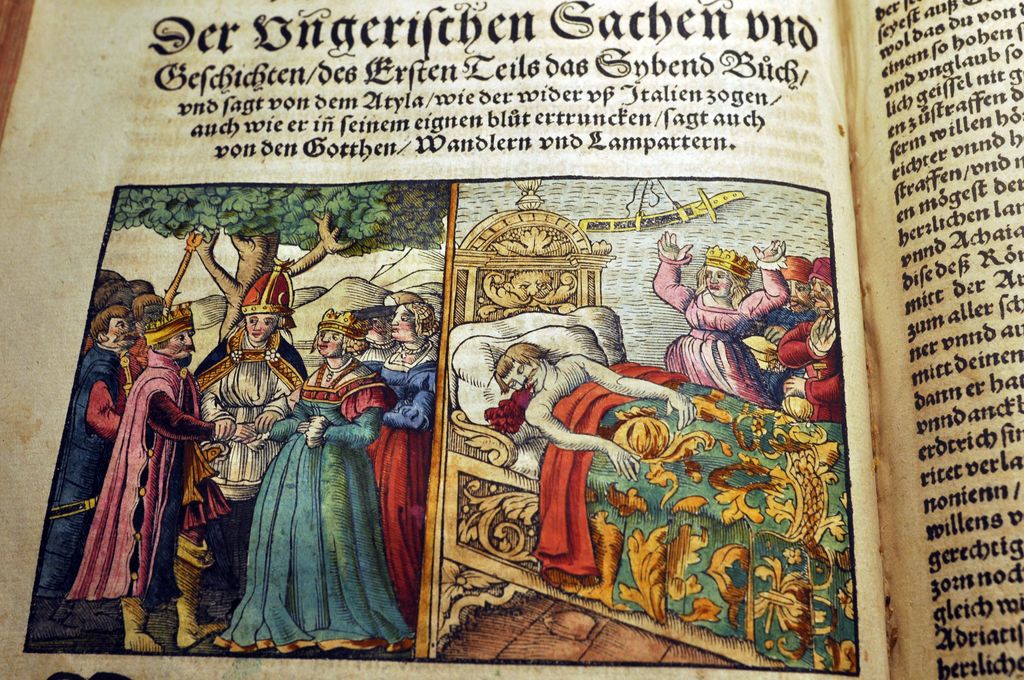 Der Vngerischen Sachen vnd
Geschichten/des Ersten Teils das Sybend Bůch/
vnd sagt von dem Atyla/wie der wider vß Italien zogen/
auch wie er in̄ seinem eignen blůt ertruncken/sagt auch
von den Gotthen/Wandlern vnd Lampartern.
seyest auß
wol das du von
einem so hohen
vnd vnglaub so
lich geissel nit
en zůstraffen
serm willen
richter vnnd
straffen/vnd
en mögest der
herrlichen
vnnd Achaia
dise deß
mitt der
zum aller
ner vnnd
mitt deinem
dann er
vnnd
erdtrich
ritet
nonienn/
willens
gerechtig
zorn noch
gleich
Adriatis
herrliche